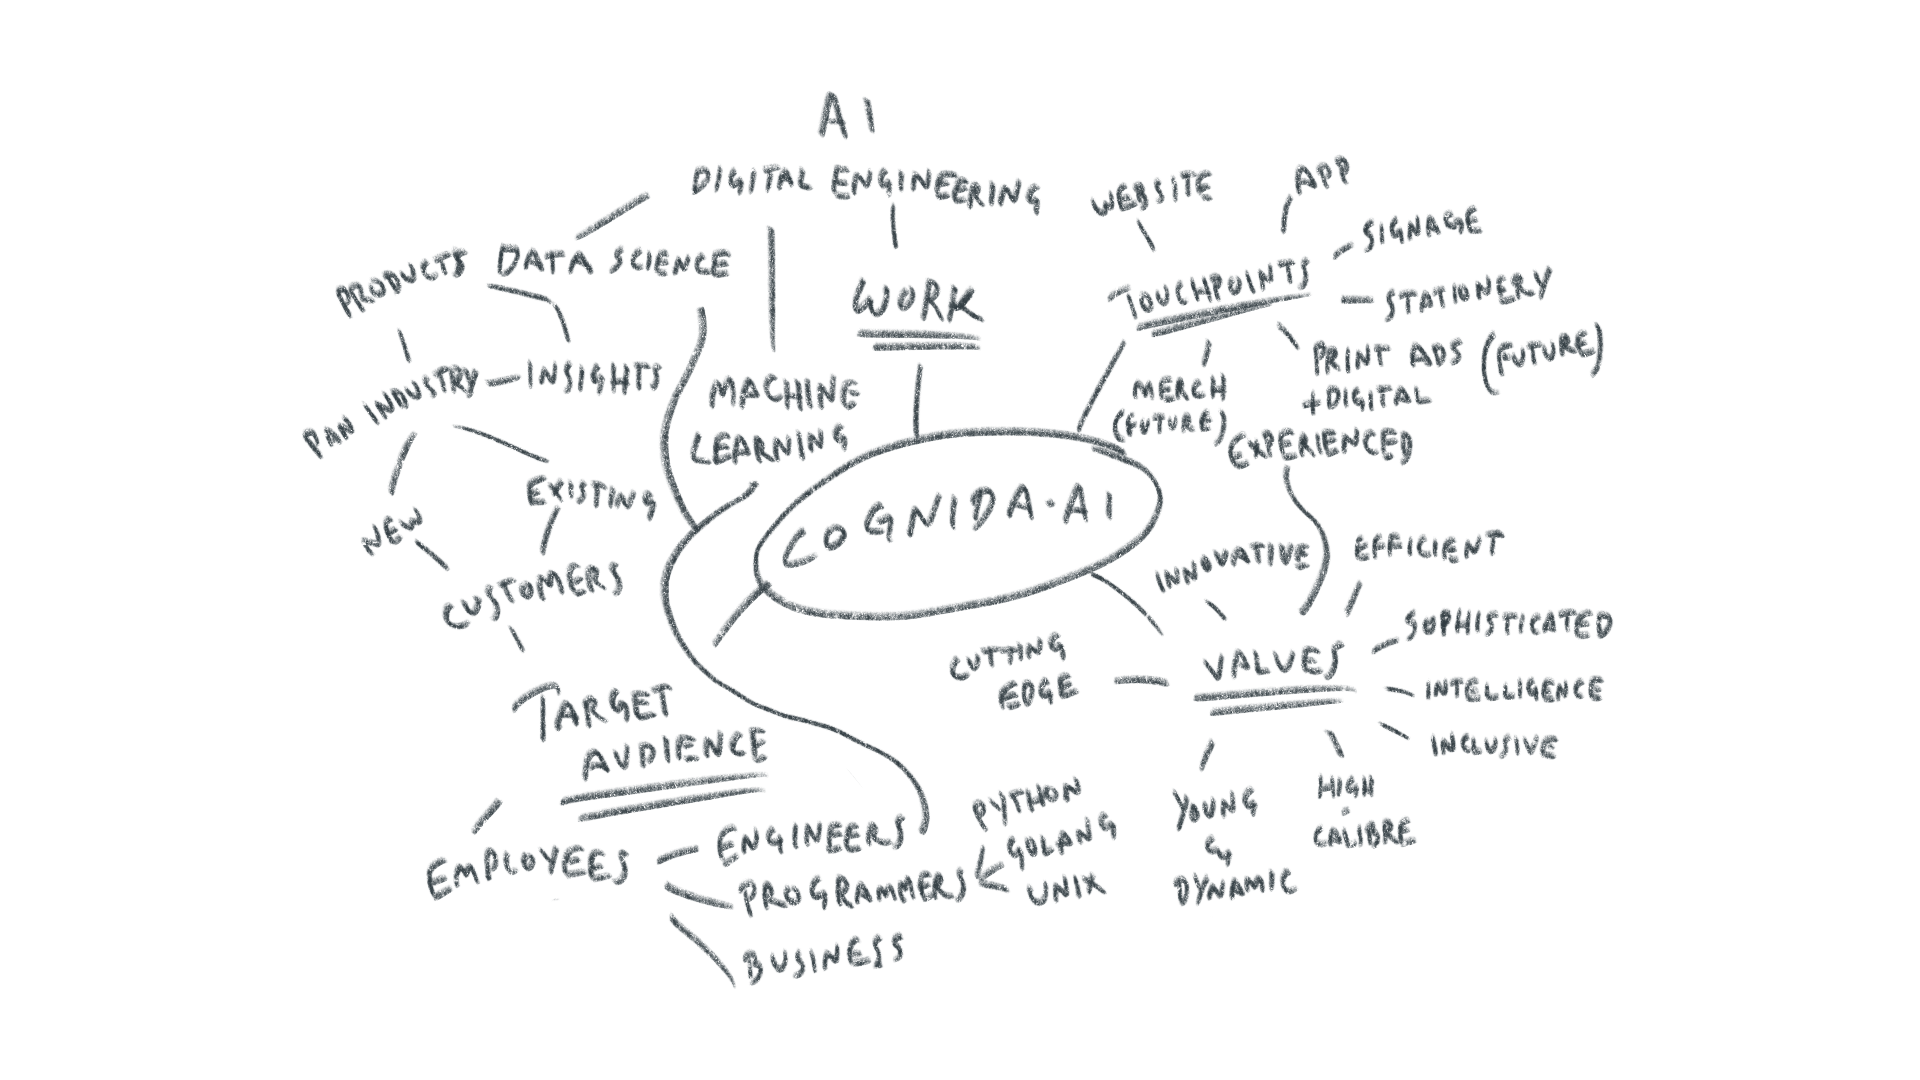 AI
DIGITAL ENGINEERING
WEBSITE
APP
SIGNAGE
PRODUCTS
DATA SCIENCE
WORK
TOUCHPOINTS
STATIONERY
PAN INDUSTRY
INSIGHTS
MACHINE
LEARNING
MERCH
(FUTURE)
PRINT ADS (FUTURE)
+DIGITAL
EXPERIENCED
NEW
EXISTING
COGNIDA.AI
CUSTOMERS
INNOVATIVE
EFFICIENT
SOPHISTICATED
CUTTING
EDGE
VALUES
INTELLIGENCE
INCLUSIVE
TARGET
AUDIENCE
YOUNG
&
DYNAMIC
HIGH
CALIBRE
EMPLOYEES
ENGINEERS
PROGRAMMERS
BUSINESS
PYTHON
GOLANG
UNIX